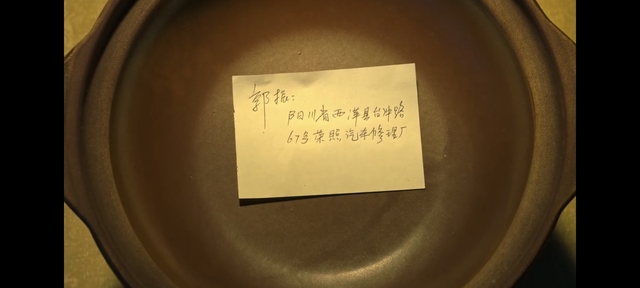 郭振:
阳川省西洋县台冲路
67号荣照汽车修理厂